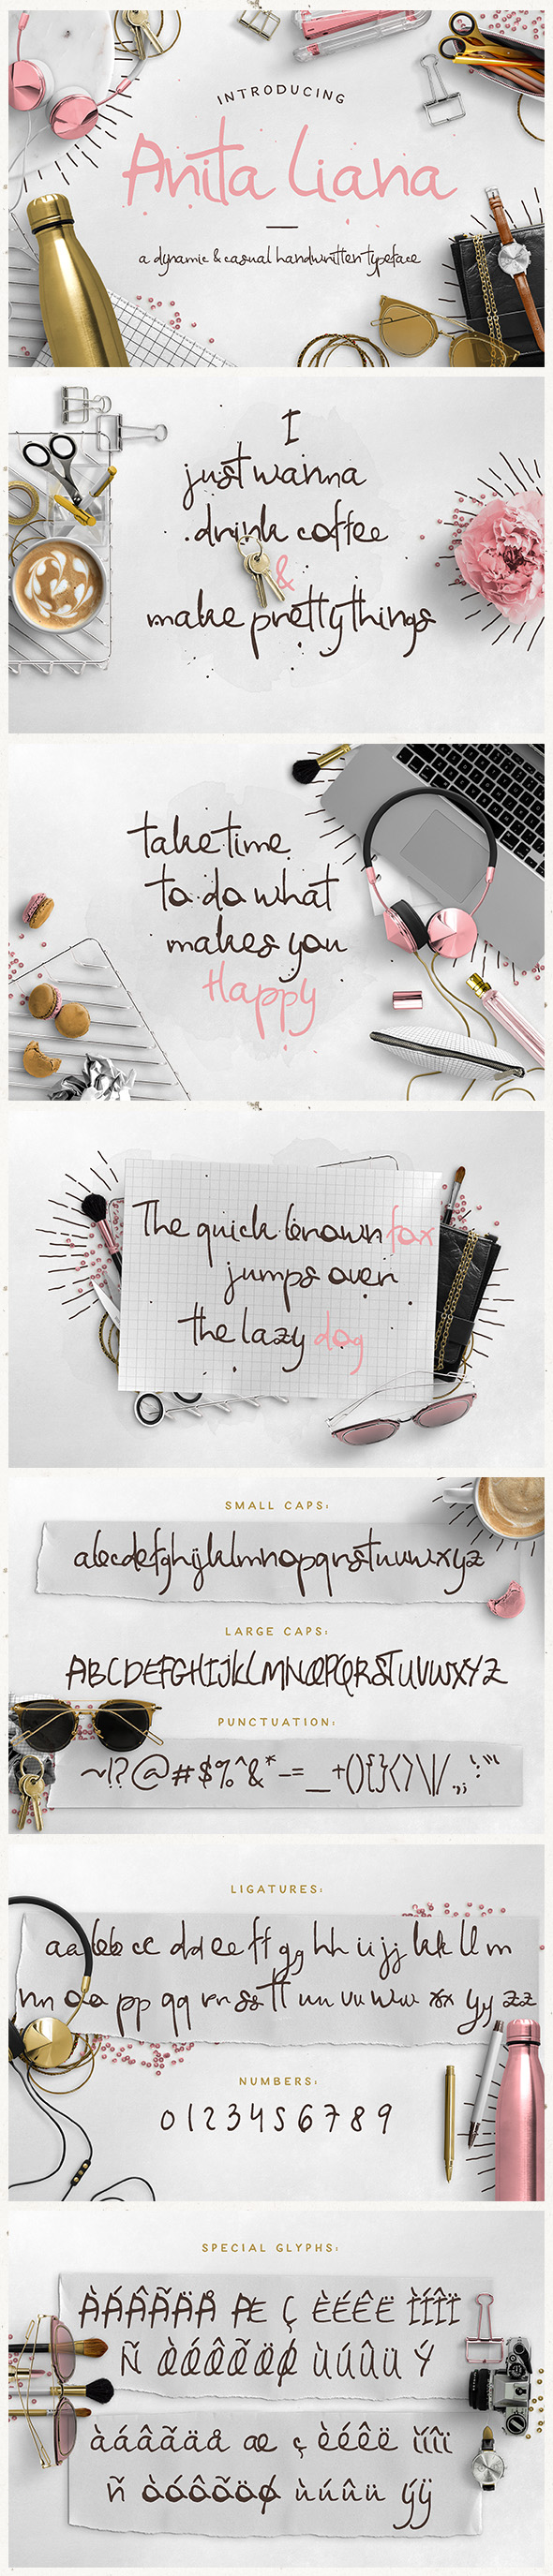 INTRODUCING
Anita Liana
a dynamic & casual handwritten typeface
I
just wanna
drink coffee
&
make pretty things
take time
to do what
makes you
Happy
The quick brown fox
jumps over
the lazy dog
SMALL CAPS:
abcdefghijklmnopqrstuvwxyz
LARGE CAPS:
ABCDEFGHIJKLMNOPQRSTUVWXYZ
PUNCTUATION:
~!?@#$%^&*-=_+(){}<>\|/.,;:'"
LIGATURES:
aa bb cc dd ee ff gg hh ii jj kk ll m
nn oo pp qq rr ss tt uu vv ww xx yy zz
NUMBERS:
0123456789
SPECIAL GLYPHS:
ÀÁÂÃÄÅ Æ Ç ÈÉÊË ÌÍÎÏ
Ñ ÒÓÔÕÖØ ÙÚÛÜ Ý
àáâãäå æ ç èéêë ìíîï
ñ òóôõöø ùúûü ýÿ